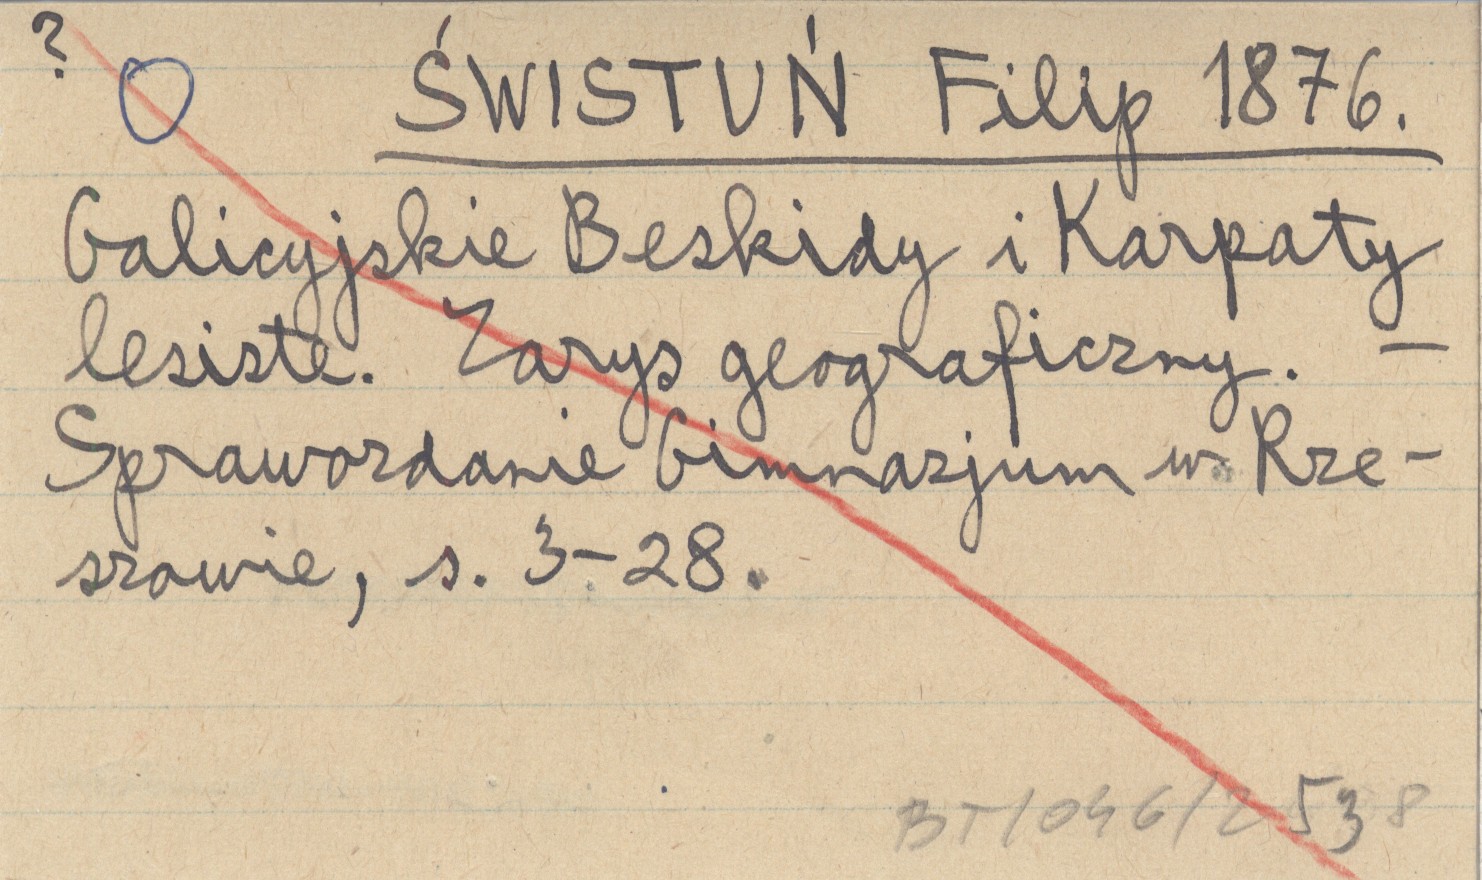 ?
ŚWISTUŃ Filip 1876.
Galicyjskie Beskidy i Karpaty
lesiste. Zarys geograficzny. —
Sprawozdanie Gimnazjum w Rze-
szowie, s. 3-28.
BT/046/2538